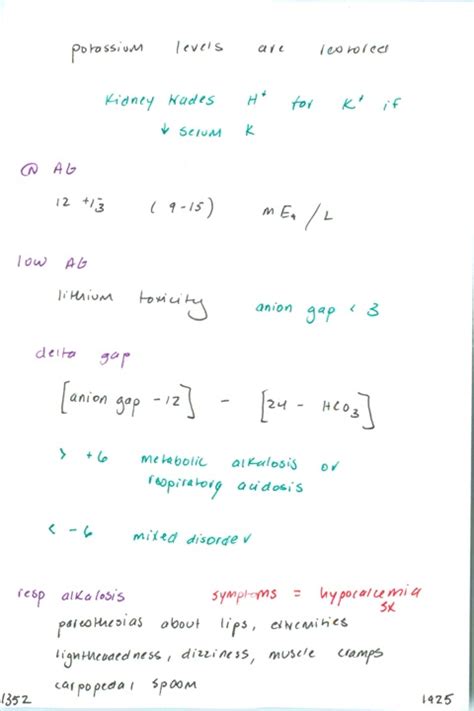 potassium levels are
kidney trades H+ for K+ if
↓ serum K
Ⓝ AG
12 +/- 3 (9-15) mEq/L
low AG
lithium toxicity anion gap < 3
delta gap
[anion gap - 12] - [24 - HCO3]
> +6 metabolic alkalosis or
respiratory acidosis
< -6 mixed disorder
resp alkalosis symptoms = hypocalcemia
sx
paresthesias about lips, extremities
lightheadedness, dizziness, muscle cramps
carpopedal spasm
1352 1925